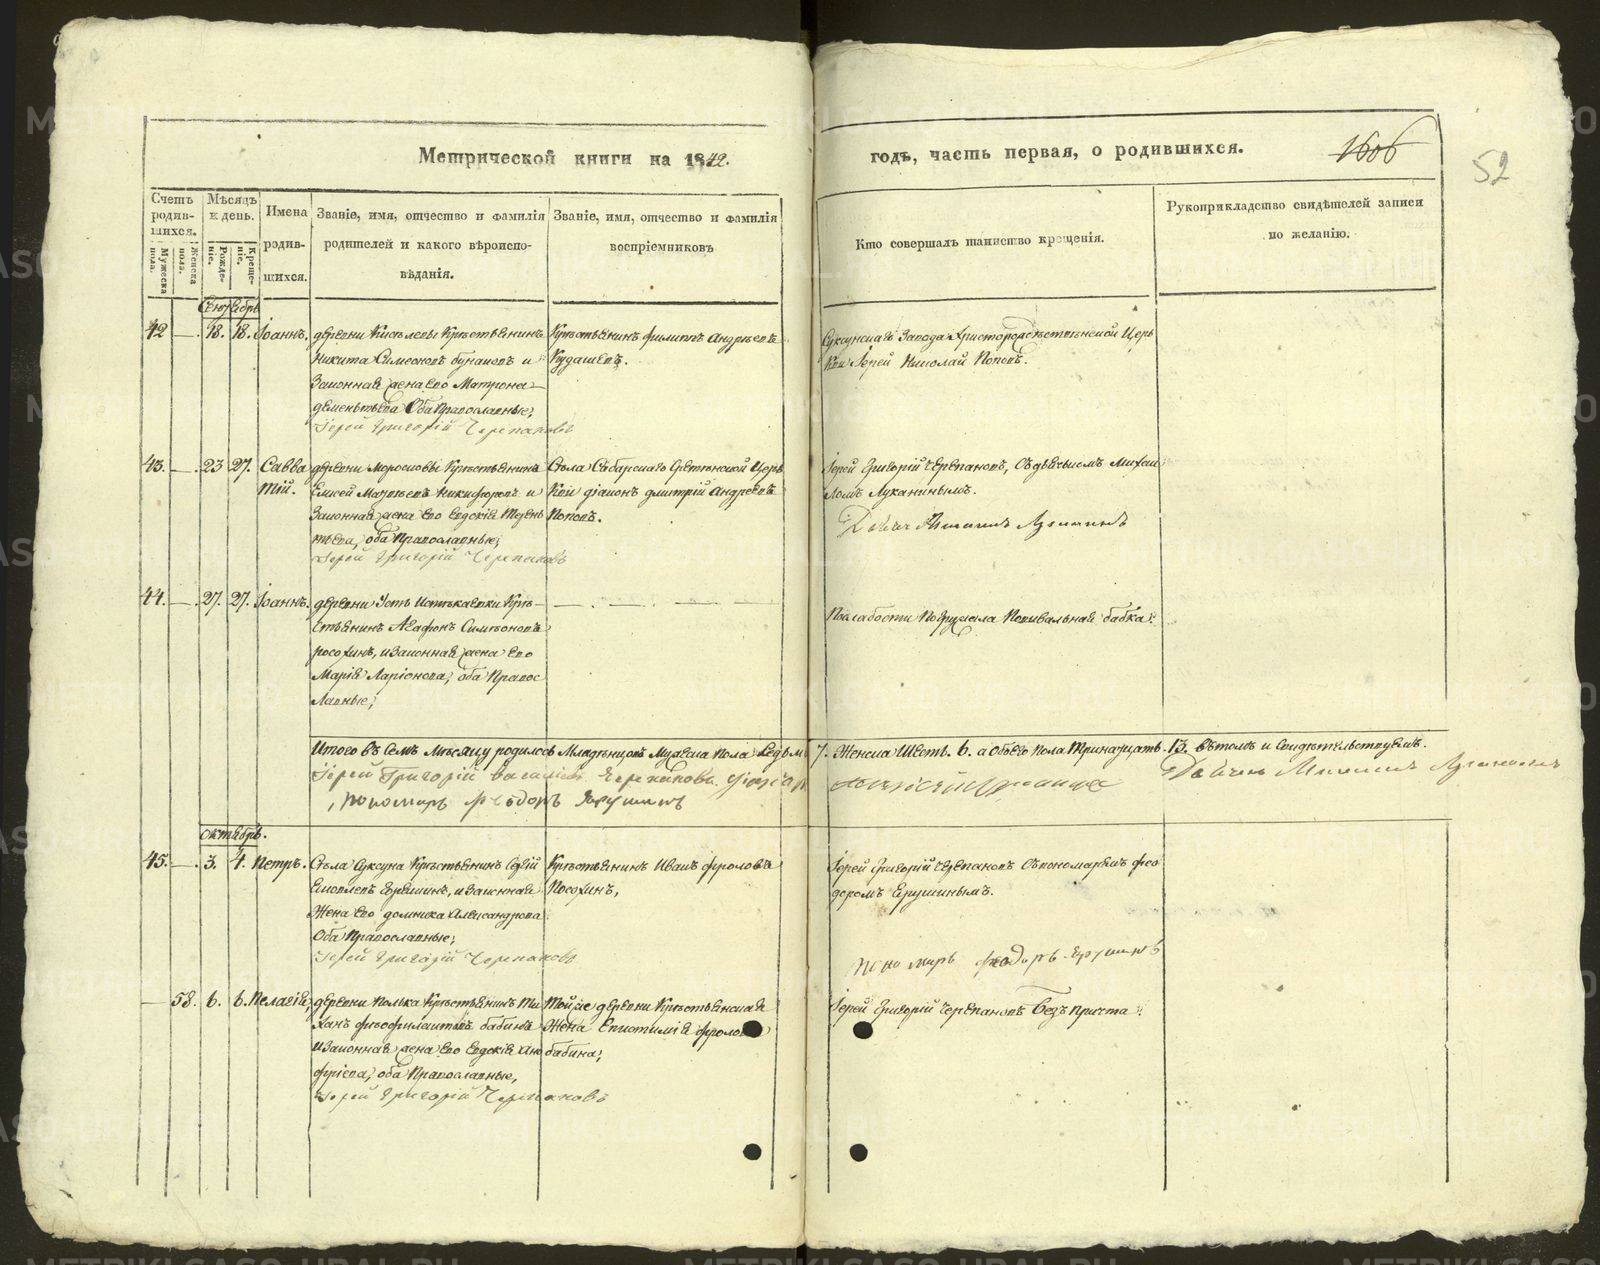 Метрической книги на 1842.
годъ, часть первая, о родившихся.
1606
52
Счетъ родив-шихся.
Мужеска пола.
Женска пола.
Мѣсяцъ и день.
Рожде-ніе.
Креще-ніе.
Имена родив-шихся.
Званіе, имя, отчество и фамилія
родителей и какого вѣроиспо-
вѣданія.
Званіе, имя, отчество и фамилія
воспріемниковъ
Кто совершалъ таинство крещенія.
Рукоприкладство свидѣтелей записи
по желанію.
Сентябрь
42 — 18. 18. Іоаннъ.
деревни Киселевы Крестьянинъ
Никита Симеоновъ бунаковъ и
Законная жена его Матрона
дементьева Оба Православные;
Іерей Григорій Черепановъ
Крестьянинъ филиппъ Андреевъ
Кудашевъ.
Суксунскаго Завода Христорождественской Церк
Кви Іерей Николай Поповъ.
43. — 23 27. Савва
тій.
деревни Моросковы Крестьянинъ
Елисей Матвеевъ Никифоровъ и
Законная жена его Евдокія Терен
тьева, оба Православные;
Іерей Григорій Черепановъ
Села Сабарскаго Сретенской Церк
Кви діаконъ димитрій Андреевъ
Поповъ.
Іерей Григорій Черепановъ, Съ дьячкомъ Михаи
ломъ Луканинымъ.
Дьячокъ Михаилъ Луканинъ
44. — 27. 27. Іоаннъ.
деревни Усть Исткаевки Кре-
стьянинъ Агафонъ Симеоновъ
росохинъ, и Законная жена его
Марія Ларіонова, оба Правос
лавные;
По слабости Погружала Повивальная бабка.
Итого въ Семъ Месяцу родилось Младенцовъ Мужеска пола Седьмь
7. Женска Шесть. 6. а Обоего пола Тринадцать. 13. въ томъ и Свидетельствуемъ.
Іерей Григорій Васильевъ Черепановъ.
Дьячокъ Михаилъ Луканинъ
пономарь Феодоръ Ярушинъ
октябрь.
45. — 3. 4. Петръ.
Села Суксуна Крестьянинъ Сергій
Яковлевъ Горяшинъ, и Законная
Жена его домника Александрова
Оба Православные;
Іерей Григорій Черепановъ
Крестьянинъ Иванъ фроловъ
Посохинъ,
Іерей Григорій Черепановъ Съ пономаремъ фео
доромъ Ярушинымъ.
пономарь феодоръ Ярушинъ
— 58. 6. 6. Пелагія,
деревни Полька Крестьянинъ Ти
ханъ феофилактовъ бабинъ
и Законная жена его Евдокія Ано
фріева, оба Православные,
Іерей Григорій Черепановъ
Той же деревни Крестьянская
Жена Епистимія фролова
бабина;
Іерей Григорій Черепановъ безъ причта.
METRIKI.GASO-URAL.RU